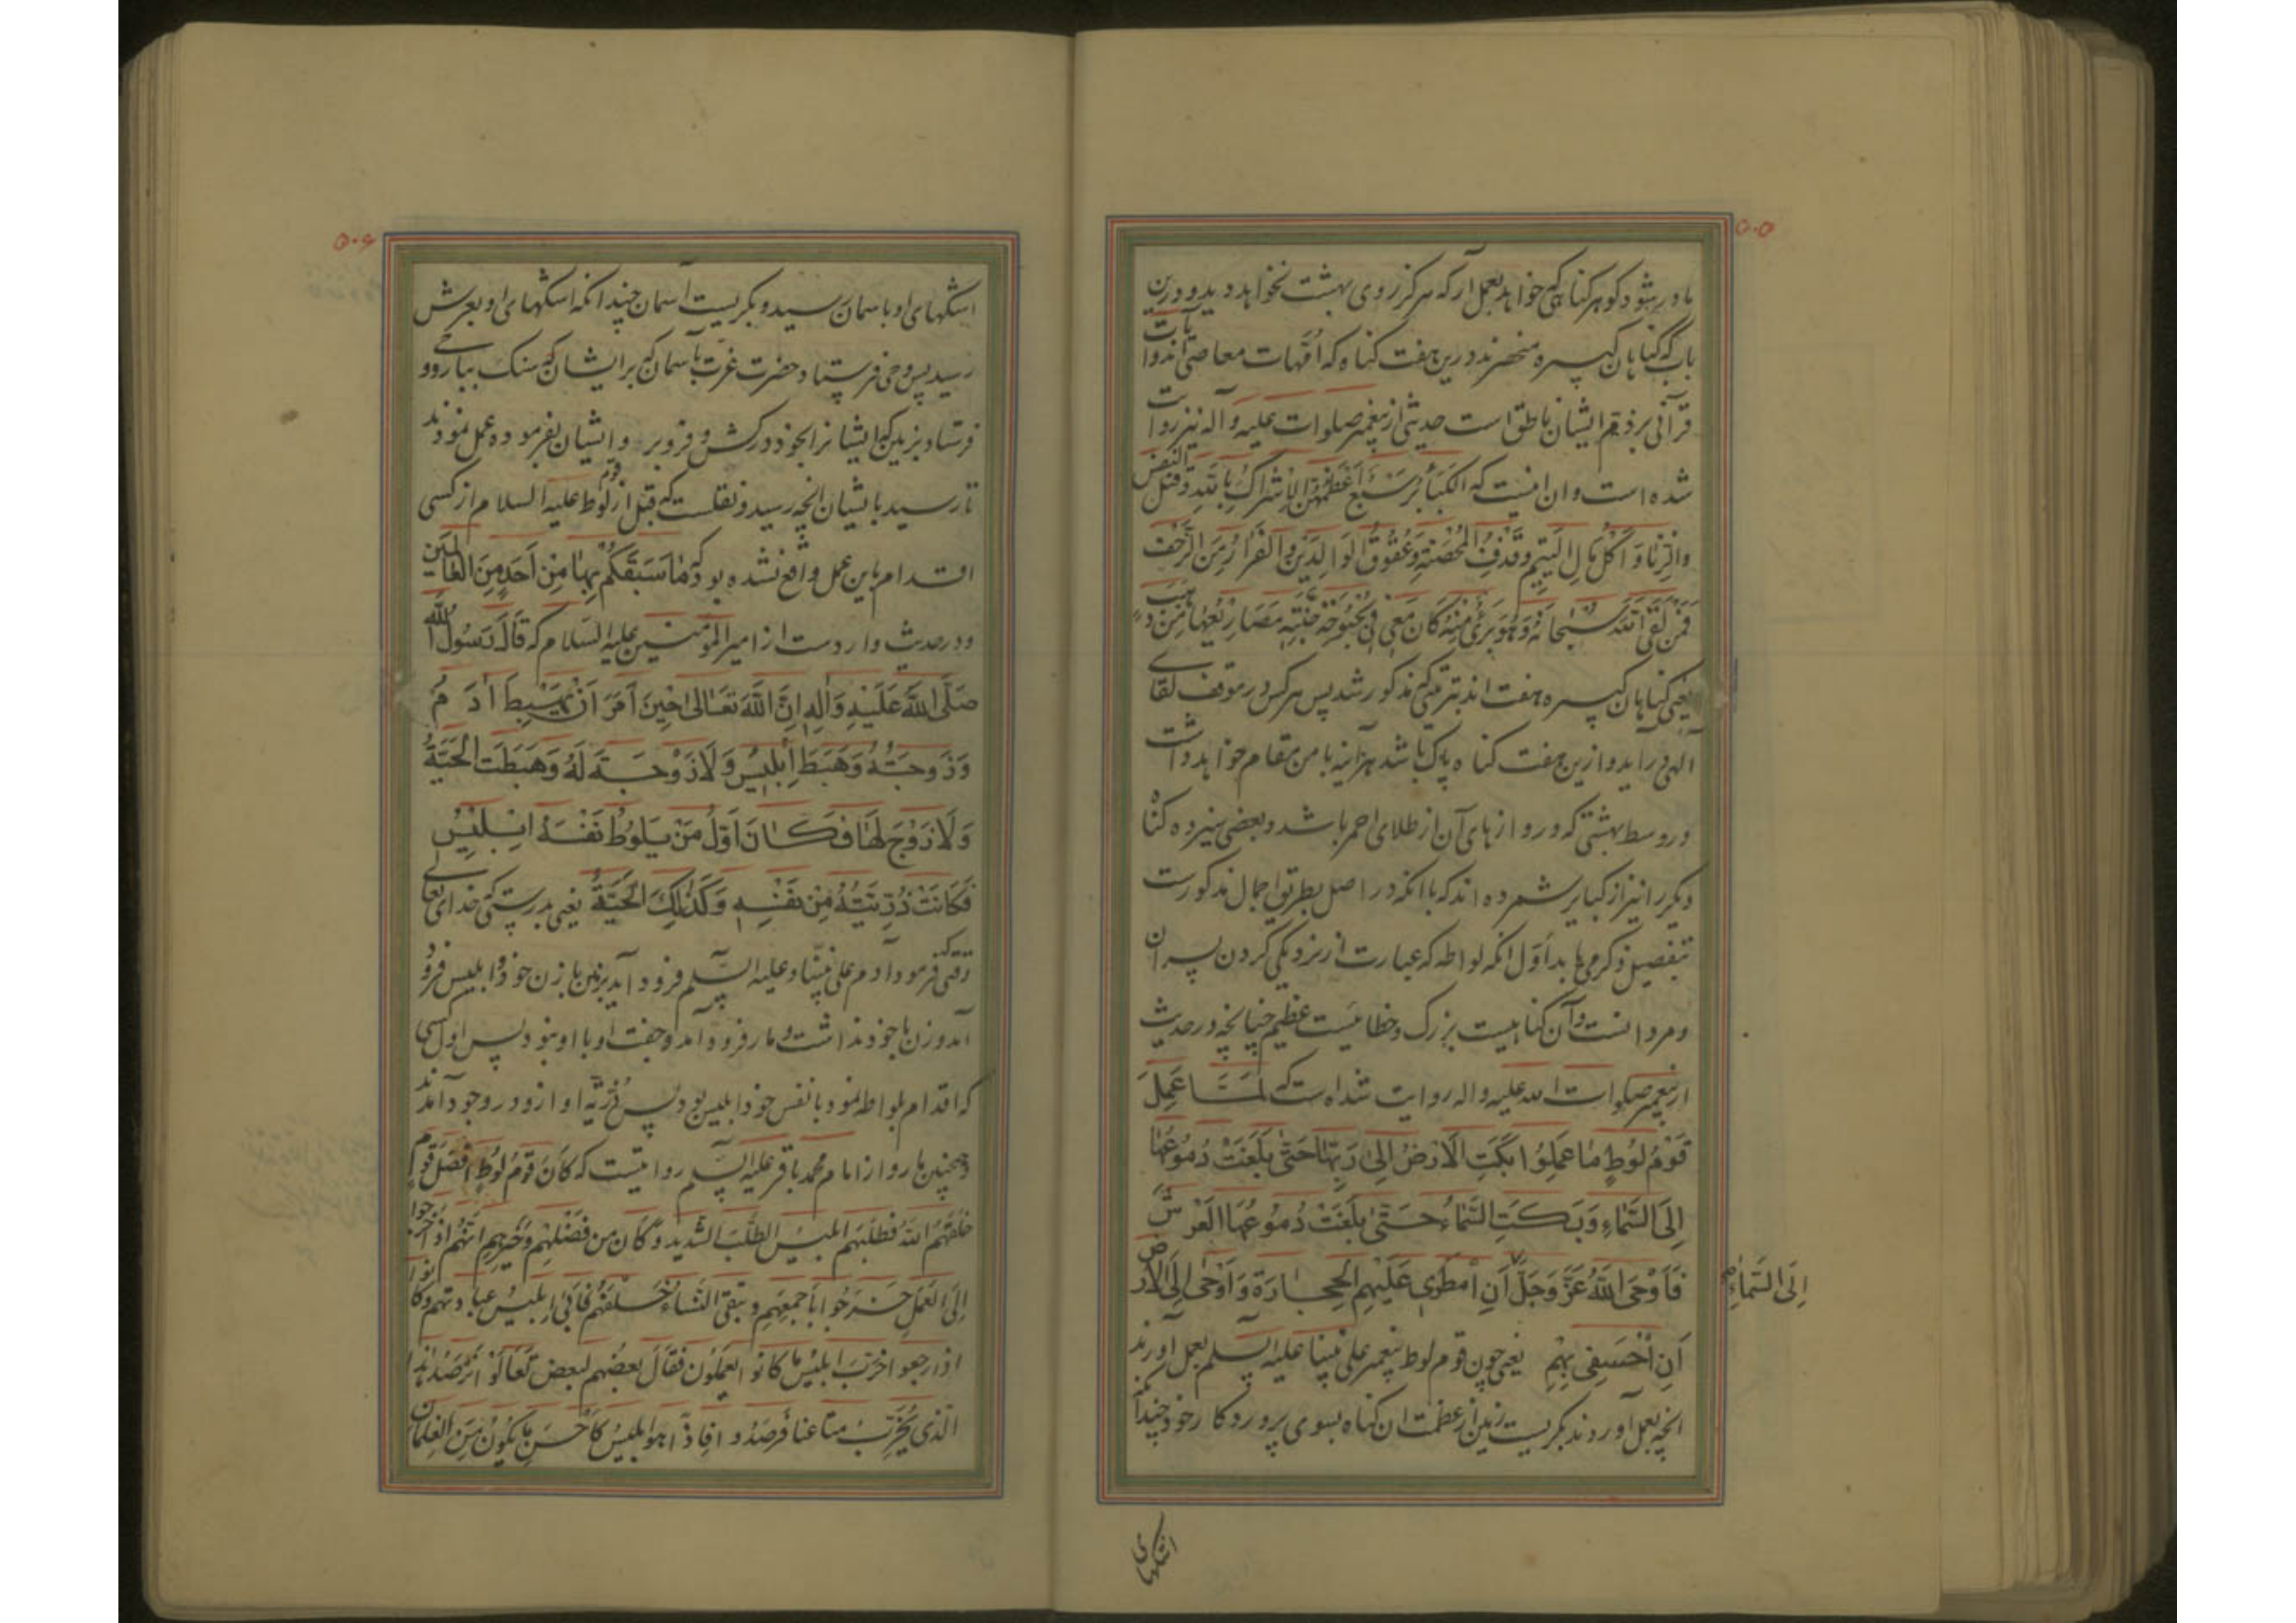 ۵۰۵
مادر بشود کو هر کناهی که خواهد بعمل آر که هرکز روی بهشت نخواهد دید و درین
باب که کناهان کبیره منحصرند درین هفت کناه که امّهات معاصی اند و آیات
قرآنی بر ذم ایشان ناطق است حدیثی از پیغمبر صلوات علیه و آله نیز روایت
شده است و ان اینست که الکَبَائرُ سَبْعٌ اَعْظَمُهُنَّ الاِشْراکُ بِاللهِ وَقَتلُ النفس
والزّنا وَ اَکْلُ مَالِ الیَتیمِ وقَذفُ المُحْصَنَةِ وَعُقُوقُ الوَالِدَینِ والفَرارُ مِنَ الزَّحْف
فَمَنْ لَقِیَ اللهَ سُبْحَانَهُ وَهُوَ بَرِیءٌ مِنْهُنَّ کَانَ مَعِی فی بُحْبُوحَةِ جَنَّةٍ مَصَارِیعُها مِنْ ذهب
یعنی کناهان کبیره هفت اند بترتیبی که مذکور شد پس هر کس در موقف لقای
الهی در آید و ازین هفت کناه پاک باشد هر آینه با من مقام خواهد داشت
در وسط بهشتی که دروازهای آن از طلای احمر باشد و بعضی سیزده کناه
دیکر را نیز از کبایر شمرده اند که با انکه در اصل بطریق اجمال مذکورست
بتفصیل ذکر می یابد اَوّل انکه لواطه که عبارت از نزدیکی کردن پسران
و مردانست و آن کناهیست بزرک و خطائیست عظیم چنانچه در حدیث
از پیغمبر صلوات الله علیه واله روایت شده است که لَمَّا عَمِلَ
قَوْمُ لُوطٍ مَا عَمِلُوا بَکَتِ الاَرْضُ اِلیٰ رَبِّهَا حَتّیٰ بَلَغَتْ دُمُوعُهَا
اِلَی السَّمَاءِ وَبَکَتِ السَّمَاءُ حَتّیٰ بَلَغَتْ دُمُوعُهَا العَرْشَ
فَاَوْحَی اللهُ عَزَّ وَجَلَّ اَنِ اَمْطِرِی عَلَیْهِمِ الحِجَارَةَ وَاَوْحَی اِلَی الاَرْض
اِلَی السَّمَاءِ
اَنِ اخْسِفِی بِهِمْ یعنی چون قوم لوط پیغمبر علی نبینا علیه السلم بعمل آوردند
انچه بعمل آوردند بکریست زمین از عظمت ان کناه بسوی پروردکار خود چندانکه
اشکهای
۵۰۶
اشکهای او باسمان رسید و بکریست آسمان چندانکه اشکهای او بعرش
رسید پس وحی فرستاد حضرت عزت بآسمان که بر ایشان که سنک بباری و
فرستاد بزمین که ایشانرا بخود درکش و فرو بر و ایشان بفرموده عمل نمودند
تا رسید بایشان انچه رسید و نقلست که قبل از قوم لوط علیه السلام از کسی
اقدام باین عمل واقع نشده بود که مَا سَبَقَکُمْ بِهَا مِنْ اَحَدٍ مِنَ العَالَمین
و در حدیث واردست از امیر المؤمنین علیه السَلام که قَالَ رَسُولُ الله
صَلَّی اللهُ عَلَیْهِ وَاٰلِهِ اِنَّ اللهَ تَعَالیٰ حِینَ اَمَرَ اَنْ یَهْبِطَ اٰدَمُ
وَزَوجَتُهُ وَهَبَطَ اِبْلِیسُ وَلَا زَوْجَةَ لَهُ وَهَبَطَت الحَیَّةُ
وَلَا زَوْجَ لَهَا فَکَانَ اَوّلُ مَنْ یَلُوطُ نَفْسَهُ اِبْلِیْسُ
فَکَانَتْ ذُرِّیَّتُهُ مِنْ نَفْسِهِ وَکَذٰلِکَ الحَیَّةُ یعنی بدرستی که خدای تعالی
وقتی که فرمود آدم علی نبینا و علیه السّلم فرود آید بزمین با زن خود و ابلیس فرود
آمد و زن با خود نداشت و مار فرود آمد و جفت او با او نبود پس اول کسی
که اقدام بلواطه نمود با نفس خود ابلیس بود پس ذرّیّه او ازو در وجود آمدند
و همچنین مار و از امام محمد باقر علیه السّلم روایتست که کَانَ قَومُ لُوطٍ اَفْضَلَ قَومٍ
خَلَقَهُم اللهُ فطَلَبَهُم ابلیسُ الطلَبَ الشَّدید وَکَانَ من فَضْلِهِمْ وَخَیرِهِم اَنَّهُم اِذا خَرَجوا
اِلَی العَمَلِ خَرَجُوا بِاَجْمَعِهِم وتَبقَی النّسَاءُ خَلْفَهُم فَاَتیٰ اِبلیسُ عِبَادَتهم وکَانوا
اذا رجعوا اخرَبَ ابلیسُ ما کانوا یَعملُون فقالَ بعضُهم لِبعضٍ تَعَالَوْا نَرصُدُ هٰذا
الّذی یُخَرِّبُ متاعنا فَرصَدُوه فِاذا هو ابلیسُ کاَحْسَنِ ما یَکُونُ مِنَ الغِلمان